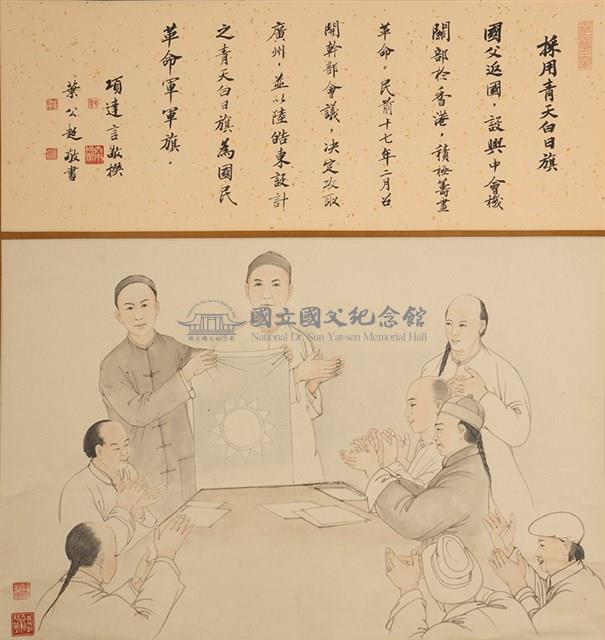 採用青天白日旗
國父返國，設興中會機
關部於香港，積極籌畫
革命。民前十七年二月召
開幹部會議，決定攻取
廣州，並以陸皓東設計
之青天白日旗為國民
革命軍軍旗。
項達言敬撰
葉公超敬書
國立國父紀念館
National Dr. Sun Yat-sen Memorial Hall
國立國父紀念館